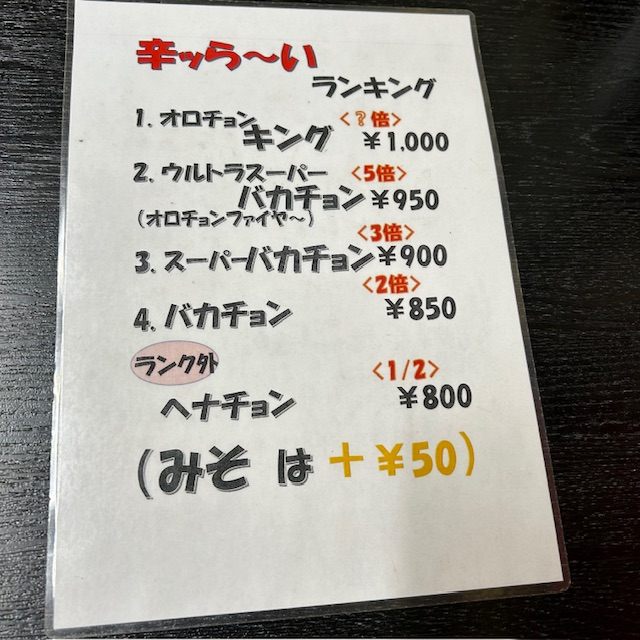 辛ッら〜い
ランキング
1. オロチョン <?倍>
キング ¥1,000
2. ウルトラスーパー <5倍>
バカチョン ¥950
(オロチョンファイヤ〜)
<3倍>
3. スーパーバカチョン ¥900
<2倍>
4. バカチョン ¥850
ランク外 <1/2>
ヘナチョン ¥800
(みそ は + ¥50)